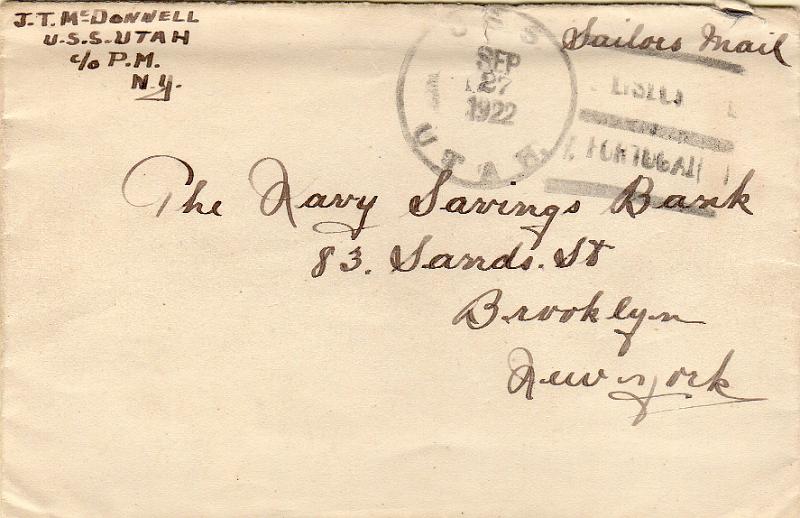 J. T. McDONNELL
U.S.S. UTAH
c/o P.M.
N.Y.
Sailors Mail
U S S
SEP
27
1922
UTAH
PORTUGAL
The Navy Savings Bank
83. Sands. St
Brooklyn
New York